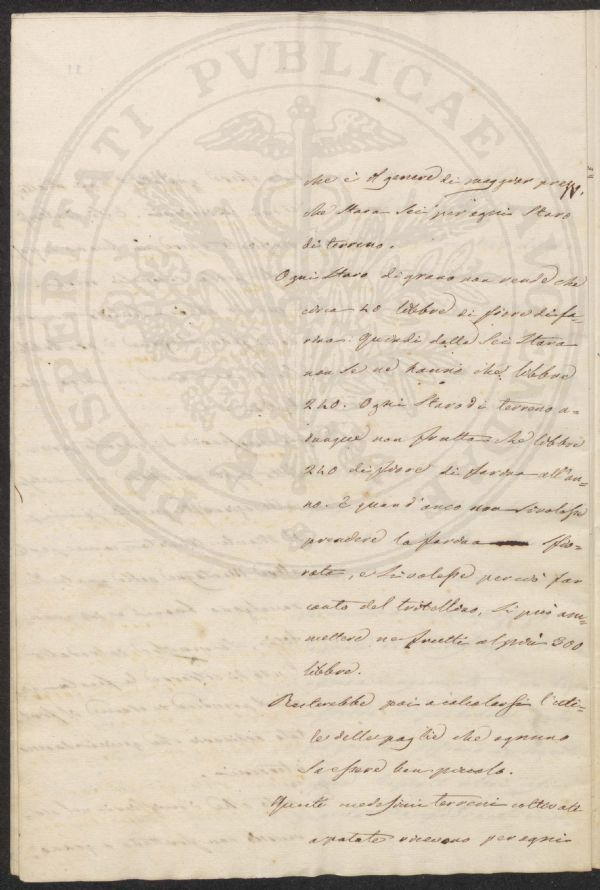 PROSPERITATI PVBLICAE AVGENDAE
che è il genere di maggior prezzo,
che Stara Sei per ogni Staro
di terreno.
Ogni Staro di grano non rende che
circa 40 libbre di fiore di fa-
rina. Quindi dalle Sei Stara
non se ne hanno che libbre
240. Ogni Staro di terreno a-
dunque non frutta che libbre
240 di fiore di farina all'an-
no. E quand'anco non si volesse
prendere la farina fio-
rata, e si volesse perciò far
conto del tritellino, si può am-
mettere ne frutti al più 300
libbre.
Resterebbe poi a calcolarsi l'uti-
le delle paglie che ognuno
sa essere ben piccolo.
Questi medesimi terreni coltivati
a patate ricevono per ogni